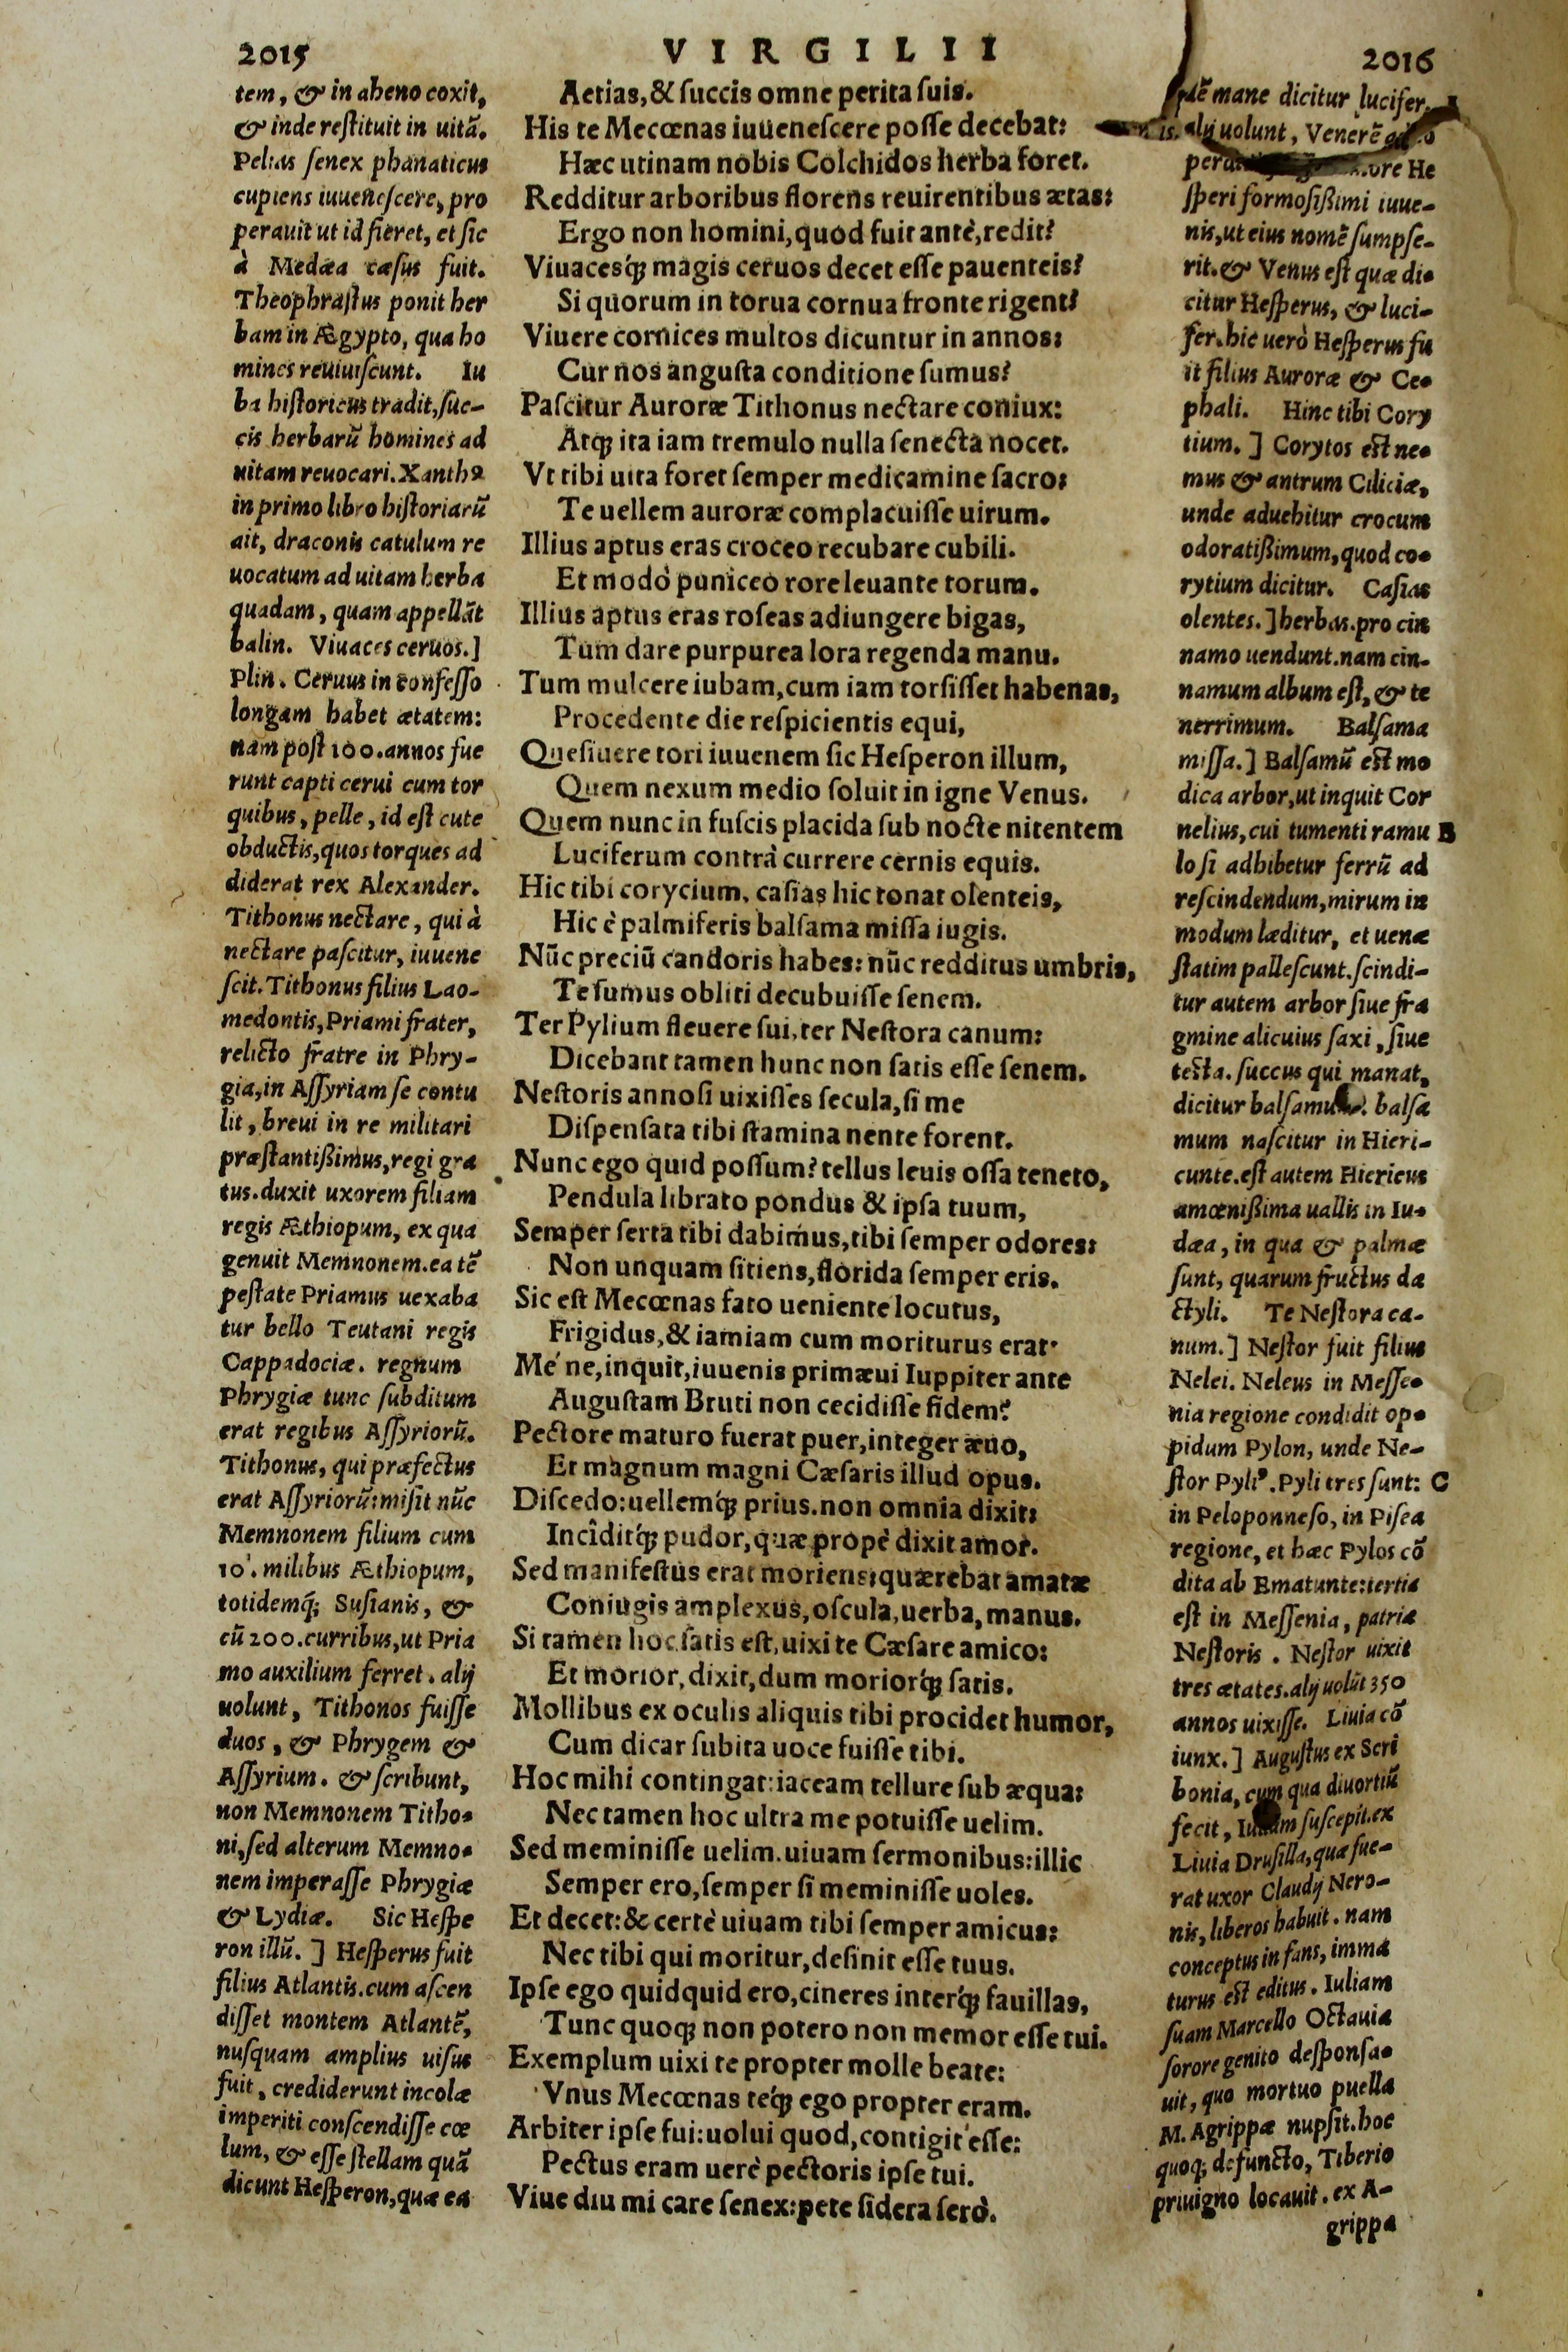 2015
VIRGILII
2016
tem, & in aheno coxit,
& inde restituit in uitā.
Pelias senex phanaticus
cupiens iuuenescere, pro
perauit ut id fieret, et sic
à Medæa cæsus fuit.
Theophrastus ponit her
bam in Ægypto, qua ho
mines reuiuiscunt. Iu
ba historicus tradit, suc-
cis herbarū homines ad
uitam reuocari. Xanthꝰ
in primo libro historiarū
ait, draconis catulum re
uocatum ad uitam herba
quadam, quam appellāt
balin. Viuaces ceruos.]
Plin. Ceruus in confesso
longam habet ætatem:
nam post 100. annos fue
runt capti cerui cum tor
quibus, pelle, id est cute
obductis, quos torques ad
diderat rex Alexander.
Tithonus nectare, qui à
nectare pascitur, iuuene
scit. Tithonus filius Lao-
medontis, Priami frater,
relicto fratre in Phry-
gia, in Assyriam se contu
lit, breui in re militari
præstantißimus, regi gra
tus. duxit uxorem filiam
regis Æthiopum, ex qua
genuit Memnonem. ea tē
pestate Priamus uexaba
tur bello Teutani regis
Cappadociæ. regnum
Phrygiæ tunc subditum
erat regibus Assyriorū.
Tithonus, qui præfectus
erat Assyriorū: misit nūc
Memnonem filium cum
10. milibus Æthiopum,
totidemq́; Susianis, &
cū 200. curribus, ut Pria
mo auxilium ferret. alij
uolunt, Tithonos fuisse
duos, & Phrygem &
Assyrium. & scribunt,
non Memnonem Titho-
ni, sed alterum Memno-
nem imperasse Phrygiæ
& Lydiæ. Sic Hespe
ron illū.] Hesperus fuit
filius Atlantis. cum ascen
disset montem Atlantē,
nusquam amplius uisus
fuit, crediderunt incolæ
imperiti conscendisse cœ
lum, & esse stellam quā
dicunt Hesperon, quæ ea
Aetias, & succis omne perita suis.
His te Mecœnas iuuenescere posse decebat:
Hæc utinam nobis Colchidos herba foret.
Redditur arboribus florens reuirentibus ætas:
Ergo non homini, quod fuit antè, redit?
Viuacesq́; magis ceruos decet esse pauenteis?
Si quorum in torua cornua fronte rigent?
Viuere cornices multos dicuntur in annos:
Cur nos angusta conditione sumus?
Pascitur Auroræ Tithonus nectare coniux:
Atq; ita iam tremulo nulla senecta nocet.
Vt tibi uita foret semper medicamine sacro:
Te uellem auroræ complacuisse uirum.
Illius aptus eras croceo recubare cubili.
Et modò puniceo rore leuante torum.
Illius aptus eras roseas adiungere bigas,
Tum dare purpurea lora regenda manu.
Tum mulcere iubam, cum iam torsisset habenas,
Procedente die respicientis equi,
Quesiuere tori iuuenem sic Hesperon illum,
Quem nexum medio soluit in igne Venus.
Quem nunc in fuscis placida sub nocte nitentem
Luciferum contrà currere cernis equis.
Hic tibi corycium, casias hic tonat olenteis,
Hic è palmiferis balsama missa iugis.
Nūc preciū candoris habes: nūc redditus umbris,
Te sumus obliti decubuisse senem.
Ter Pylium fleuere sui, ter Nestora canum:
Dicebant tamen hunc non satis esse senem.
Nestoris annosi uixisses secula, si me
Dispensata tibi stamina nente forent.
Nunc ego quid possum? tellus leuis ossa teneto,
Pendula librato pondus & ipsa tuum,
Semper serta tibi dabimus, tibi semper odores:
Non unquam sitiens, florida semper eris.
Sic est Mecœnas fato ueniente locutus,
Frigidus, & iamiam cum moriturus erat.
Mé ne, inquit, iuuenis primæui Iuppiter ante
Augustam Bruti non cecidisse fidem?
Pectore maturo fuerat puer, integer æuo,
Et magnum magni Cæsaris illud opus.
Discedo: uellemq́; prius. non omnia dixit:
Incîditq́; pudor, quæ propè dixit amor.
Sed manifestus erat moriens: quærebat amatæ
Coniugis amplexus, oscula, uerba, manus.
Si tamen hoc satis est, uixi te Cæsare amico:
Et morior, dixit, dum moriorq́; satis.
Mollibus ex oculis aliquis tibi procidet humor,
Cum dicar subita uoce fuisse tibi.
Hoc mihi contingat: iaceam tellure sub æqua:
Nec tamen hoc ultra me potuisse uelim.
Sed meminisse uelim. uiuam sermonibus: illic
Semper ero, semper si meminisse uoles.
Et decet: & certè uiuam tibi semper amicus:
Nec tibi qui moritur, desinit esse tuus.
Ipse ego quidquid ero, cineres interq́; fauillas,
Tunc quoq; non potero non memor esse tui.
Exemplum uixi te propter molle beate:
Vnus Mecœnas teq́; ego propter eram.
Arbiter ipse fui: uolui quod, contigit esse:
Pectus eram uerè pectoris ipse tui.
Viue diu mi care senex: pete sidera serò.
dē mane dicitur lucifer.
alij uolunt, Venerē
He
speri formosißimi iuue-
nis, ut eius nomē sumpse-
rit. & Venus est quæ di-
citur Hesperus, & luci-
fer. hic uerò Hesperus fu
it filius Auroræ & Ce-
phali. Hinc tibi Cory
tium.] Corytos est ne-
mus & antrum Ciliciæ,
unde aduehitur crocum
odoratißimum, quod co-
rytium dicitur. Casias
olentes.] herbas. pro cin
namo uendunt. nam cin-
namum album est, & te
nerrimum. Balsama
missa.] Balsamū est mo
dica arbor, ut inquit Cor
nelius, cui tumenti ramu B
lo si adhibetur ferrū ad
rescindendum, mirum in
modum læditur, et uenæ
statim pallescunt. scindi-
tur autem arbor siue fra
gmine alicuius saxi, siue
testa. succus qui manat,
dicitur balsamum. balsa
mum nascitur in Hieri-
cunte. est autem Hiericus
amœnißima uallis in Iu-
dæa, in qua & palmæ
sunt, quarum fructus da
ctyli. Te Nestora ca-
num.] Nestor fuit filius
Nelei. Neleus in Messe-
nia regione condidit op-
pidum Pylon, unde Ne-
stor Pyliꝰ. Pyli tres sunt: C
in Peloponneso, in Pisea
regione, et hæc Pylos cō
dita ab Ematunte: tertia
est in Messenia, patria
Nestoris. Nestor uixit
tres ætates. alij uolūt 350
annos uixisse. Liuia cō
iunx.] Augustus ex Scri
bonia, cum qua diuortiū
fecit, Iuliam suscepit. ex
Liuia Drusilla, quæ fue-
rat uxor Claudij Nero-
nis, liberos habuit. nam
conceptus infans, imma
turus est editus. Iuliam
suam Marcello Octauia
sorore genito desponsa-
uit, quo mortuo puella
M. Agrippæ nupsit. hoc
quoq; defuncto, Tiberio
priuigno locauit. ex A-
grippa